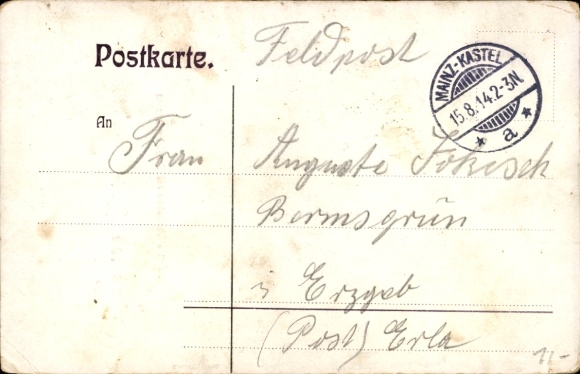 Postkarte.
Feldpost
MAINZ-KASTEL
15.8.14.2-3N.
* a *
An
Frau Auguste
Bermsgrün
Erzgeb
(Post) Erla
11-